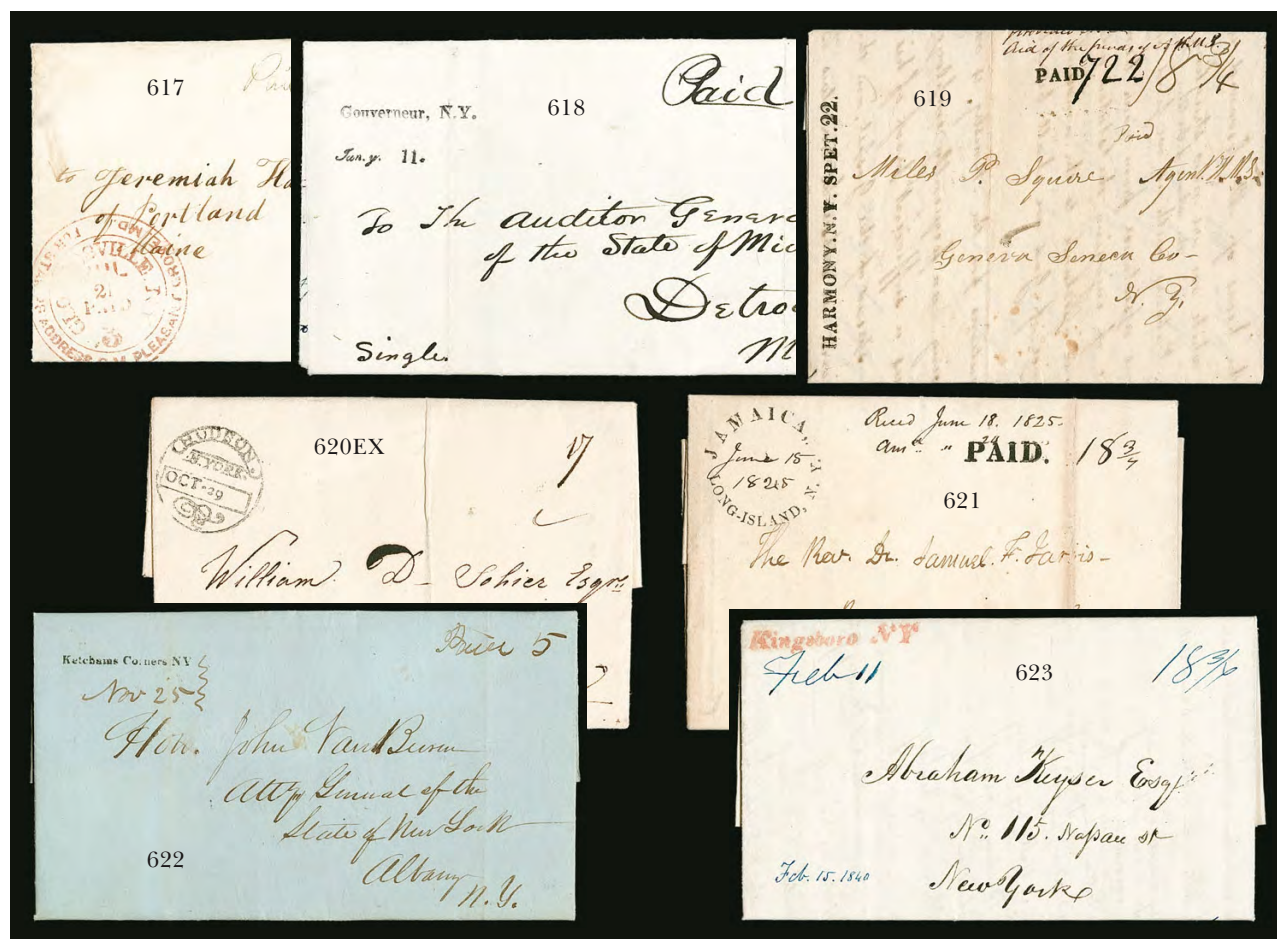 617
Paid
to Jeremiah Ha
of Portland
Maine
21
PAID
5
618
Paid
Gouverneur, N.Y.
Jan.y. 11.
To The Auditor Genera
of the State of Mic
Detro
Single
M
619
Aid of the funds of
PAID 722 / 18 3/4
Paid
HARMONY.N.Y. SPET.22.
Miles P. Squire Agent
Geneva Seneca Co-
N.Y.
620EX
HUDSON
N.YORK.
OCT-29
17
William D- Sohier Esqre
JAMAICA,
June 15
1825
LONG-ISLAND, N.Y.
Recd June 18. 1825.
Ansd " 20
PAID. 18 3/4
621
The Rev. Dr. Samuel. F. Jarvis-
Ketchams Corners NY
Nov 25
5
Hon. John Van Buren
Atty General of the
State of New York
Albany
N.Y.
622
Kingsboro NY
Feb 11
623
18 3/4
Abraham Keyser Esqr
No. 115. Nassau st
New York
Feb. 15. 1840